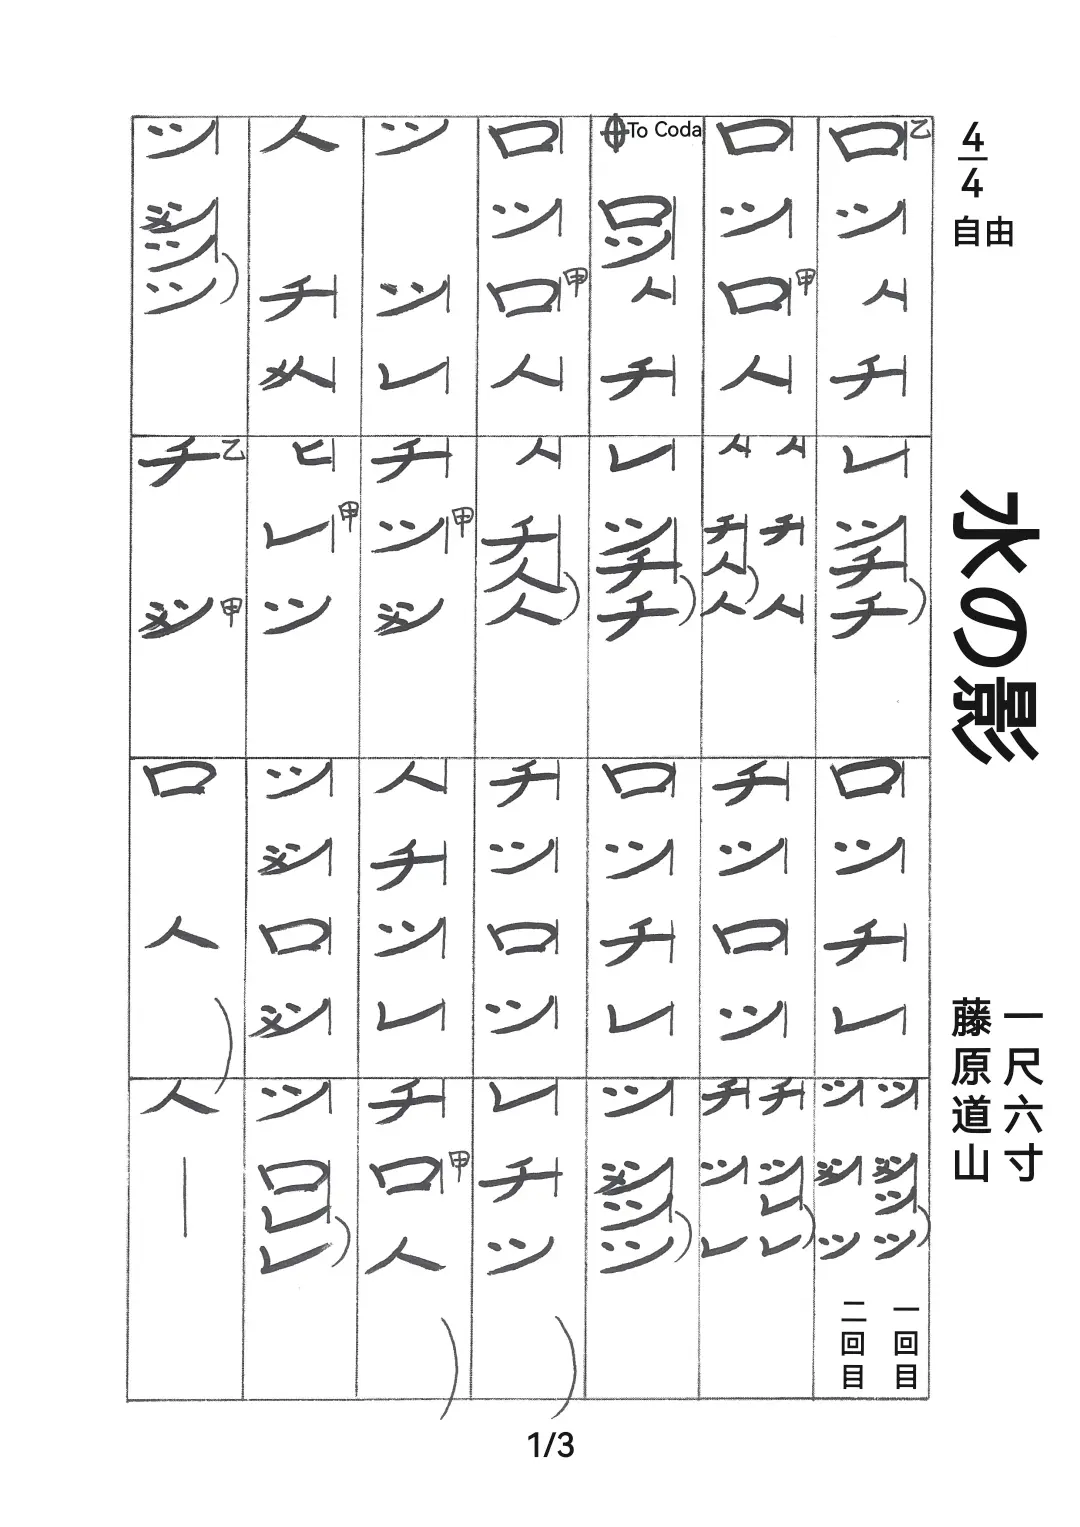 4/4
自由
水の影
一尺六寸
藤原道山
ロ乙ツハチ
レツチチ
ロツチレ
ツツツツ
一回目
ツツツ
二回目
ロツロ甲ハ
ハチハ
ハチハハ
チツロツ
チツレレ
チツレ
To Coda
ロツハチ
レツチチ
ロツチレ
ツツツツ
ロツロ甲ハ
ハチハハ
チツロツ
レチツ
ツツレ
チツ甲ツ
ハチツレ
チロ甲ハ
ハチハ
ヒレ甲ツ
ツツロツ
ツロレレ
ツツツツ
チ乙ツ甲
ロハ
ハ｜
1/3